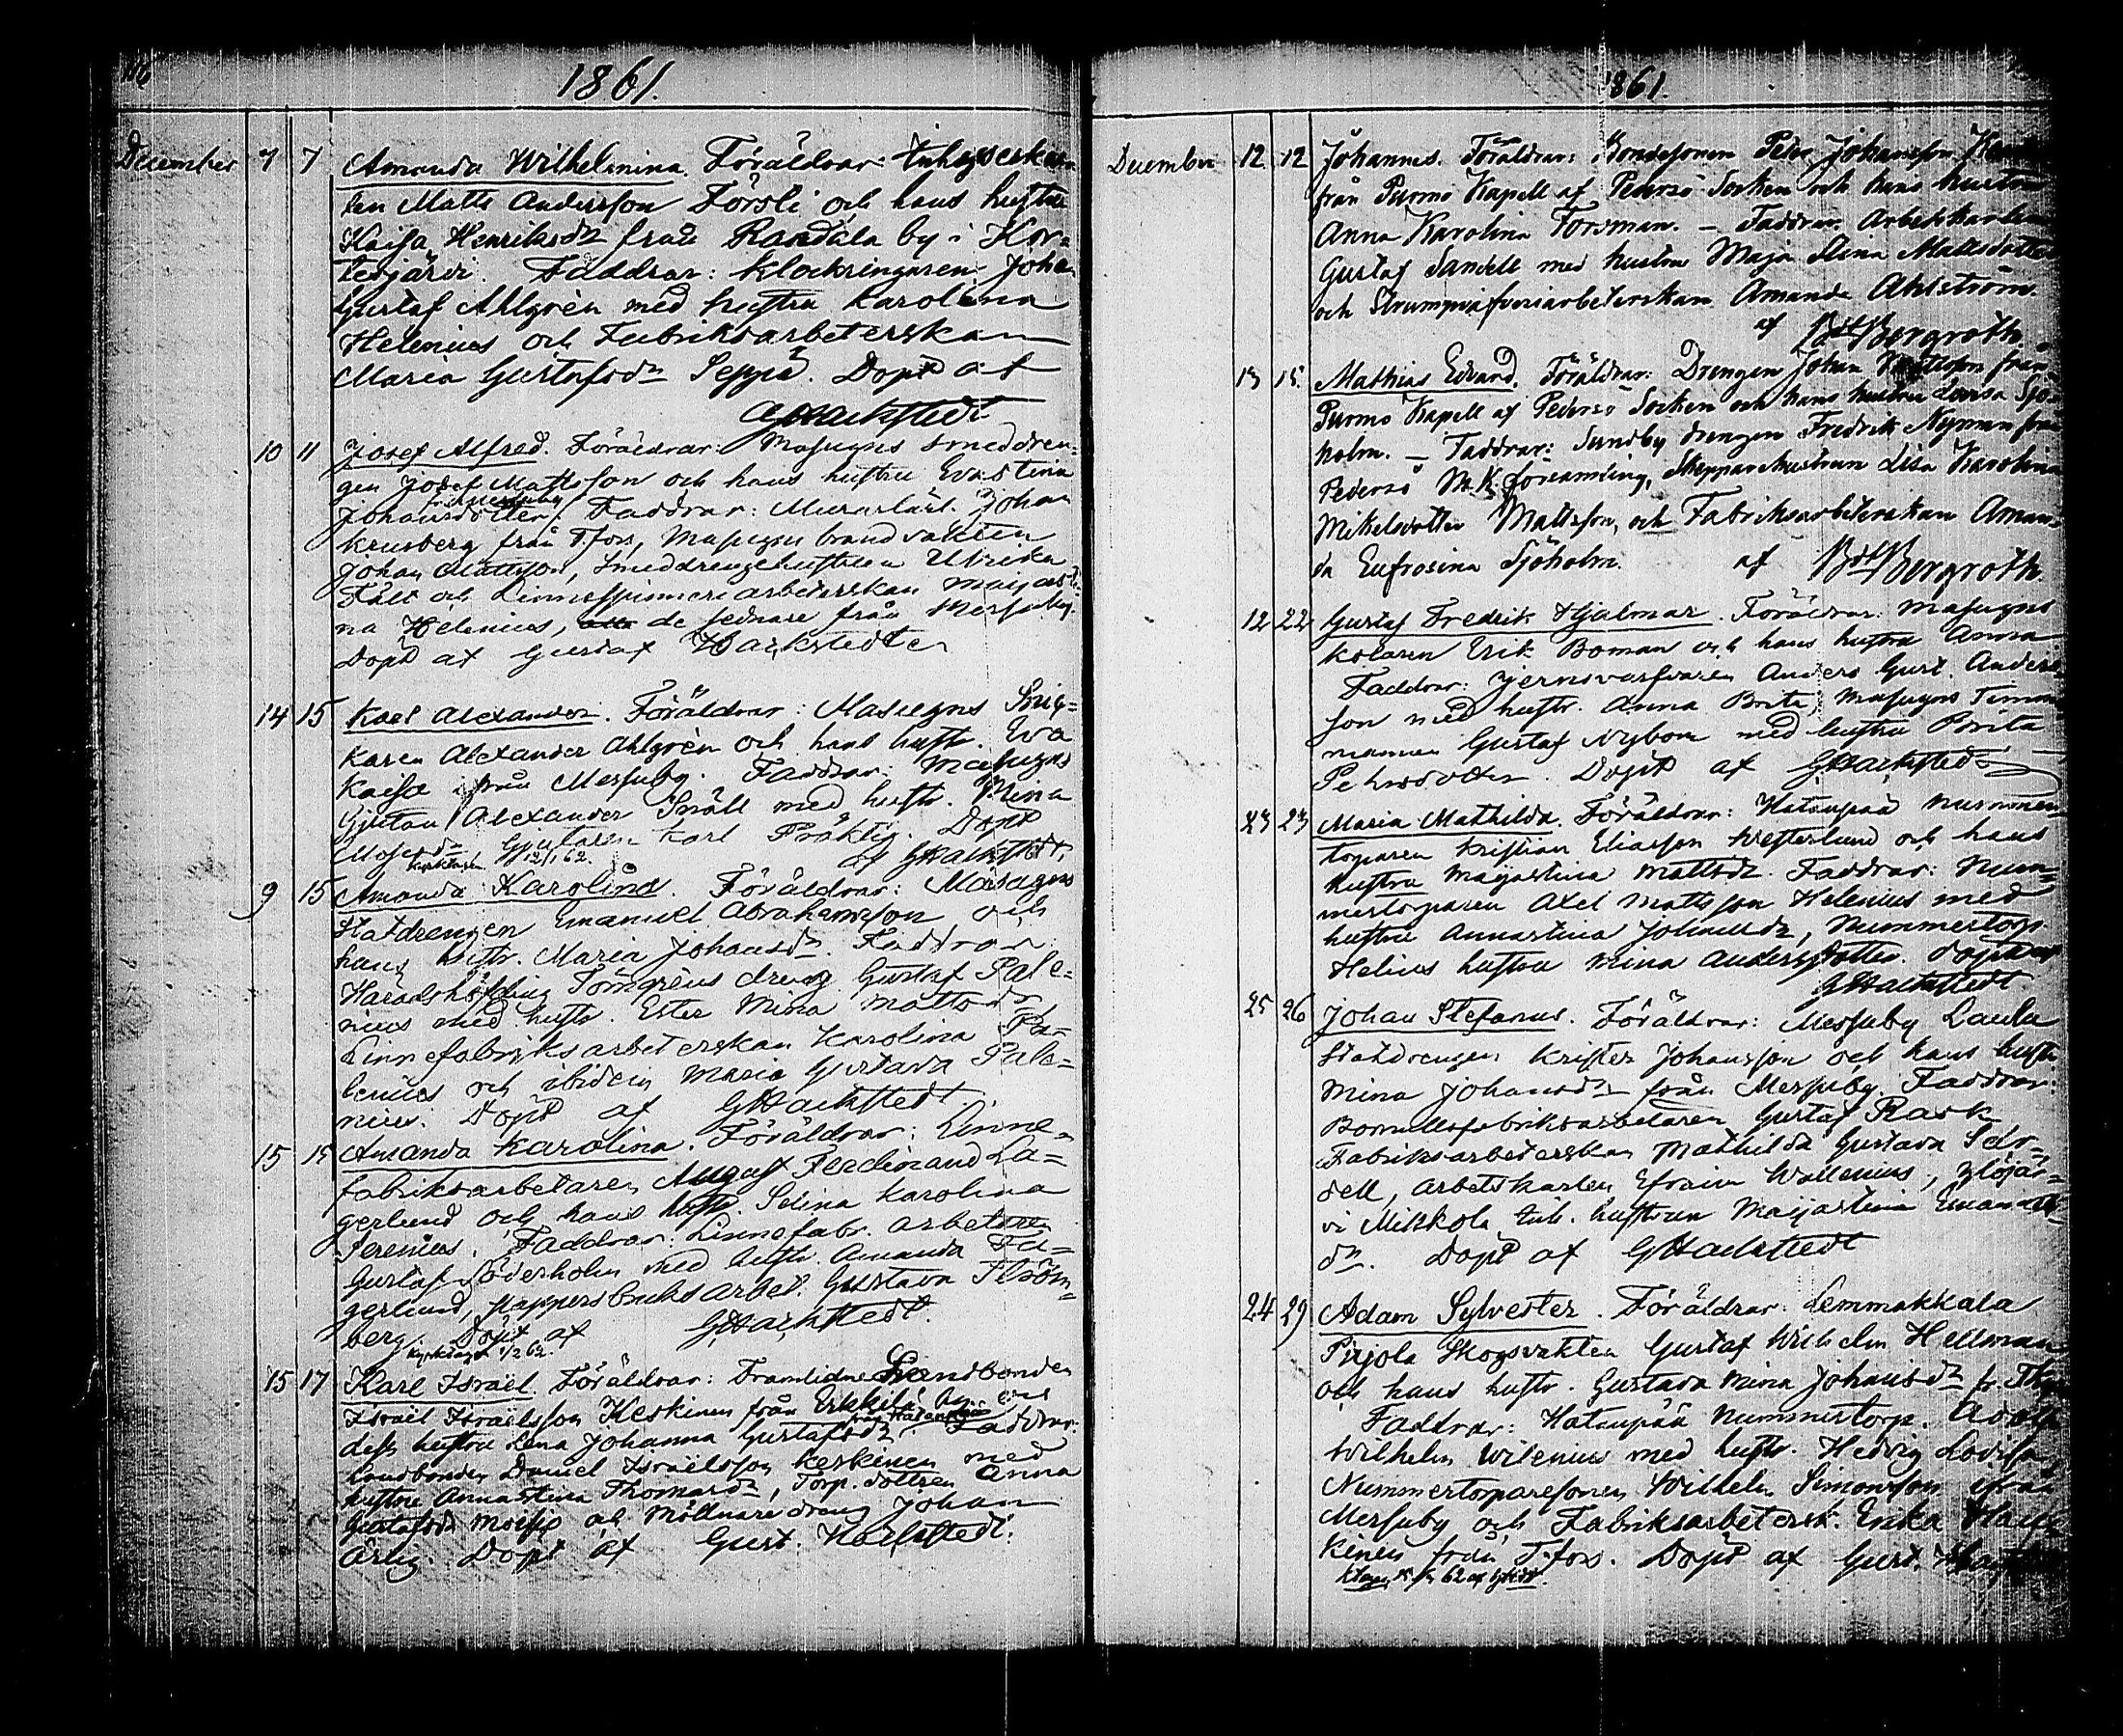 1861.
December 7 7 Amanda Wilhelmina. Föräldrar: Inhyseskar-
len Matts Andersson Försti och hans hustru
Kaisa Henriksdr från Randala by i Kor-
tesjärvi. Faddrar: Klockringaren Johan
Gustaf Ahlgrén med hustru Karolina
Helenius och Fabriksarbeterskan
Maria Gustafsdr Seppä. Döpt af
GHackstedt
10 11 Josef Alfred. Föräldrar: Masugns smeddren-
gen Josef Mattsson och hans hustru Evastina
från Messuby
Johansdotter. Faddrar: Murarlärl. Johan
Krusberg från T.fors, Masugns brandvakten
Johan Mattsson, Smeddrengehustrun Ulrika
Fält och Linnespinneriarbeterskan Maijasti-
na Helenius, de sednare från Messuby.
Döpt af Gustaf Hackstedt
14 15 Karl Alexander. Föräldrar: Masugns
karen Alexander Ahlgrén och hans hustr. Eva
Kaisa från Messuby. Faddrar: Masugns
Gjutaren Alexander Snäll med hustr. Mina
Mosesdr Gjutaren Karl Präktig. Döpt
af GHackstedt.
Kyrktagen 12/1 62.
9 15 Amanda Karolina. Föräldrar: Masugns
Statdrengen Emanuel Abrahamsson och
hans hustr. Maria Johansdr. Faddrar
Häradshöfding Törngréns dreng Gustaf Pale-
nius med hustr. Ester Mina Mattsdr
Linnefabriksarbeterskan Karolina Pa-
lenius och ibidem Maria Gustava Pale-
nius. Döpt af GHackstedt.
15 15 Amanda Karolina. Föräldrar: Linne-
fabriksarbetaren August Ferdinand La-
gerlund och hans hustr. Selina Karolina
Serenius. Faddrar: Linnefabr. arbetaren
Gustaf Söderholm med hustr. Amanda Fa-
gerlund, pappersbruksarbet. Gustava Ström-
berg. Döpt af GHackstedt.
Kyrktagen 1/2 62.
15 17 Karl Israel. Föräldrar: Framlidne Landbonden
Israel Israelsson Keskinen från Erkkilä by och
från Hatanpää
dess hustru Lena Johanna Gustafsdr. Faddrar:
Landbonden Daniel Israelsson Keskinen med
hustru Annastina Thomasdr, Torp. dottren Anna
Gustafsdr och Möllnaredreng Johan
Ärlig. Döpt af Gust. Hackstedt.
1861.
December 12 12 Johannes. Föräldrar: Bondesonen Petter Johansson
från Purmo Kapell af Pedersö Socken och hans hustru
Anna Karolina Forsman. – Faddrar: Arbetskarlen
Gustaf Sandell med hustru Maja Stina Mattsdotter
och Strumpväfveriarbeterskan Amanda Ahlström.
af Bergroth.
13 15 Mathias Edvard. Föräldrar: Drengen Johan Mattsson från
Purmo Kapell af Pedersö Socken och hans hustru Lovisa Sjö-
holm. – Faddrar: Sundby drengen Fredrik Nyman från
Pedersö M.K. församling, Skepparehustrun Lisa Karolina
Mikelsdotter Mattsson, och Fabriksarbeterskan Aman-
da Eufrosina Sjöholm. af Bergroth
12 22 Gustaf Fredrik Hjalmar. Föräldrar: Masugns
kolaren Erik Boman och hans hustru Anna
Faddrar: Jernsvarfvaren Anders Gust. Anders-
son med hustr. Anna Brita, Masugns Timmer-
mannen Gustaf Nybom med hustru Brita
Pehrsdotter. Döpt af GHackstedt
23 23 Maria Mathilda. Föräldrar: Hatanpää Nummer-
torparen Kristian Eliasson Westerlund och hans
hustru Majastina Mattsdr. Faddrar: Num-
mertorparen Axel Mattsson Helenius med
hustru Annastina Johansdr, Nummertorp.
Helius hustru Mina Andersdotter. Döpt af
GHackstedt.
25 26 Johan Stefanus. Föräldrar: Messuby Laula
Statdrengen Krister Johansson och hans hustr.
Mina Johansdr från Messuby. Faddrar:
Bomullsfabriksarbetaren Gustaf Rask
Fabriksarbeterskan Mathilda Gustava
dell, Arbetskarlen Efraim Wallenius, Ylöjär-
vi Mikkola Inh. hustrun Maijastina Emanuels-
dr. Döpt af GHackstedt
24 29 Adam Sylvester. Föräldrar: Lemmakkala
Pirjola Skogsvakten Gustaf Wilhelm Hellman
och hans hustr. Gustava Mina Johansdr
Faddrar: Hatanpää Nummertorp. Adolf
Wilhelm Wilenius med hustr. Hedvig Lovisa,
Nummertoparesonen Wilhelm Simonsson ifrån
Messuby och Fabriksarbetersk. Erika
kinen från T.fors. Döpt af Gust. Hackstedt